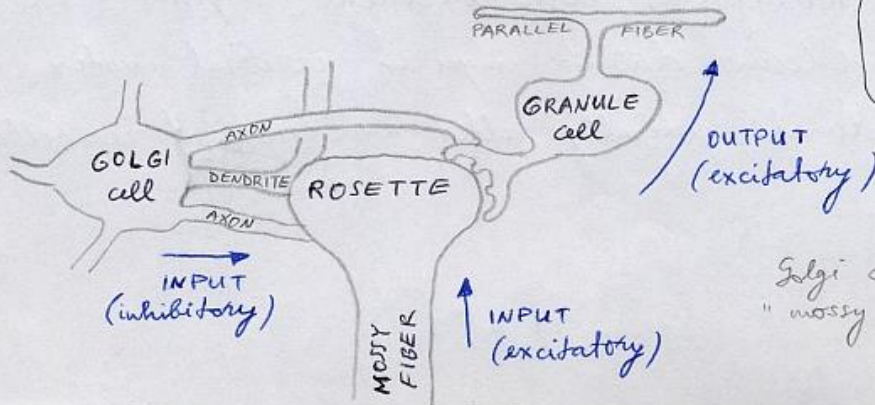 PARALLEL FIBER
GRANULE
cell
AXON
GOLGI
cell
DENDRITE
ROSETTE
AXON
OUTPUT
(excitatory)
INPUT
(inhibitory)
MOSSY
FIBER
INPUT
(excitatory)
Golgi
" mossy